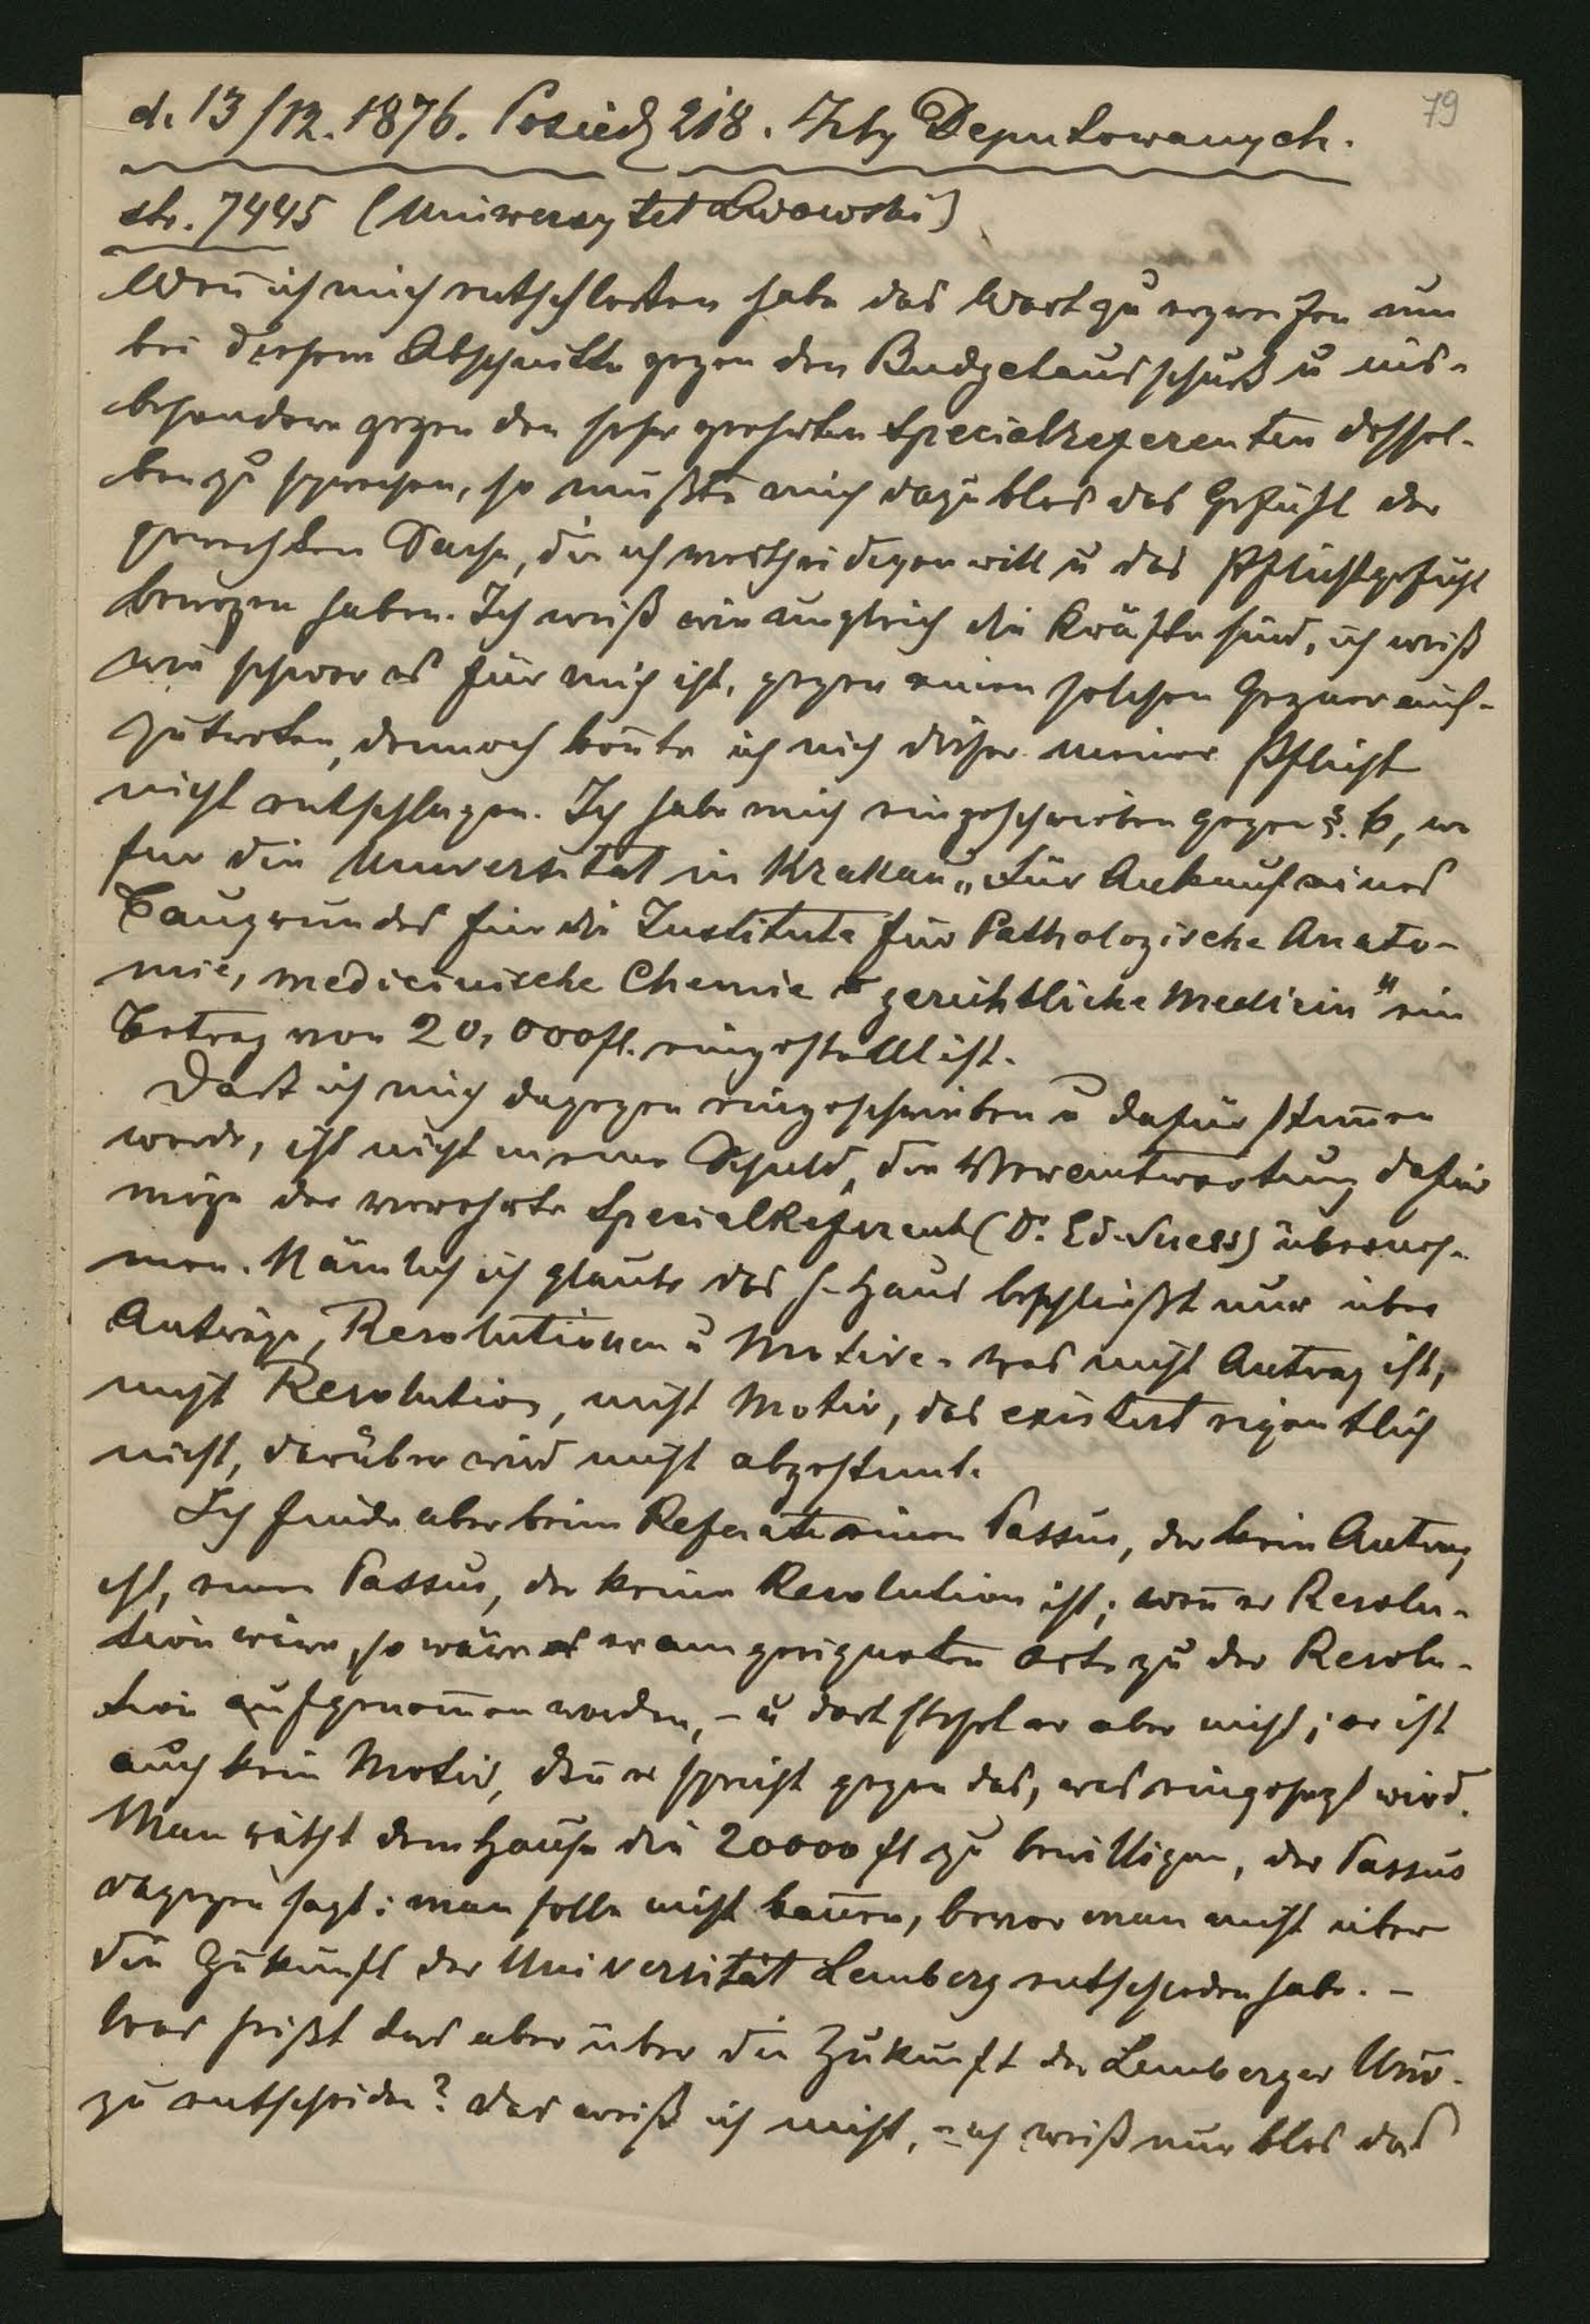 79
d. 13/12. 1876. Posiedz 218. Izby Deputowanych.
str. 7445 (Uniwersytet Lwowski)
Weñ ich mich entschloßen habe das Wort zu ergreifen um
bei diesem Abschnitte gegen den Budgetausschuß u ins-
besondere gegen den sehr geehrten Specialreferenten dessel-
ben zu sprechen, so mußte mich dazu blos das Gefühl der
gerechten Sache, die ich vertheidigen will u das Pflichtgefühl
bewogen haben. Ich weiß wie ungleich die Kräfte sind, ich weiß
wie schwer es für mich ist, gegen einen solchen Gegner auf-
zutreten, dennoch koñte ich mich dieser meiner Pflicht
nicht entschlagen. Ich habe mich eingeschrieben gegen §. 6, wo
fur die Universität in Krakau „Für Ankauf eines
Baugrundes für die Institute für Pathologische Anato-
mie, medicinische Chemie u gerichtliche Medicin" ein
Betrag von 20,000 fl. eingestellt ist.
Daß ich mich dagegen eingeschrieben u dafür stim̄en
werde, ist nicht meine Schuld, die Verantwortung dafür
möge der verehrte Specialreferent (Dr. Ed. Suess) überneh-
men. Nämlich ich glaube das h. Haus beschließt nur über
Anträge, Resolutionen u Motive. Was nicht Antrag ist,
nicht Resolution, nicht Motiv, das existirt eigentlich
nicht, darüber wird nicht abgestim̄t.
Ich finde aber beim Referate einen Passus, der kein Antrag
ist, einen Passus, der keine Resolution ist; weñ er Resolu-
tion wäre, so wäre er am geeigneten Orte zu der Resolu-
tion aufgenom̄en worden, – u dort stehet er aber nicht; er ist
auch kein Motiv, deñ er spricht gegen das, was eingesezt wird.
Man räth dem Hause die 20000 fl zu bewilligen, der Passus
dagegen sagt: man solle nicht bauen, bevor man nicht über
die Zukunft der Universität Lemberg entschieden habe. –
Was heißt das aber über die Zukunft der Lemberger Univ.
zu entscheiden? das weiß ich nicht, – ich weiß nur blos das